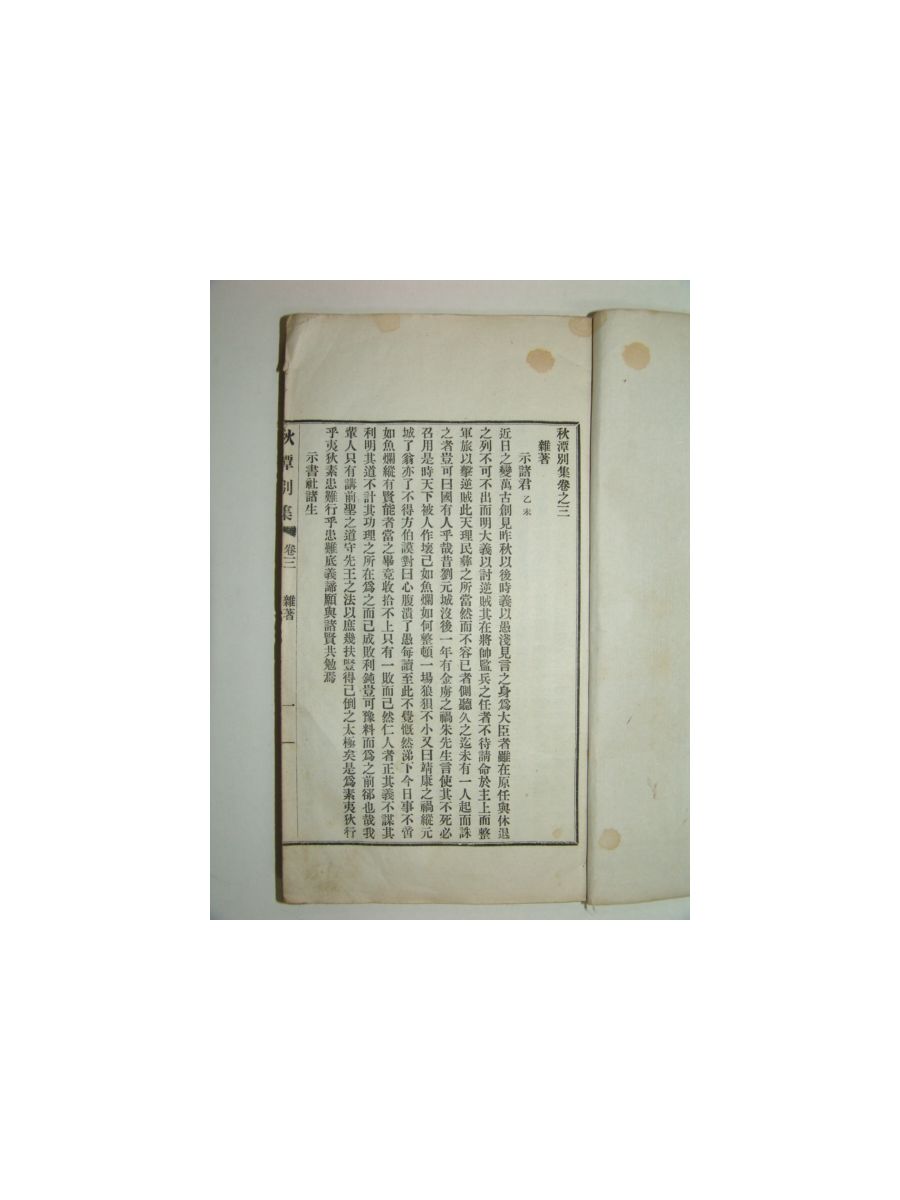 秋潭別集卷之三
雜著
示諸君 乙未
近日之變萬古創見昨秋以後時義以愚淺見言之身爲大臣者雖在原任與休退
之列不可不出而明大義以討逆賊其在將帥監兵之任者不待請命於主上而整
軍旅以擊逆賊此天理民彝之所當然而不容已者側聽久之迄未有一人起而誅
之者豈可曰國有人乎哉昔劉元城沒後一年有金虜之禍朱先生言使其不死必
召用是時天下被人作壞已如魚爛如何整頓一場狼狽不小又曰靖康之禍縱元
城了翁亦了不得方伯謨對曰心腹潰了愚每讀至此不覺慨然涕下今日事不啻
如魚爛縱有賢能者當之畢竟收拾不上只有一敗而已然仁人者正其義不謀其
利明其道不計其功理之所在爲之而已成敗利鈍豈可豫料而爲之前郤也哉我
輩人只有講前聖之道守先王之法以庶幾扶豎得已倒之太極矣是爲素夷狄行
乎夷狄素患難行乎患難底義諦願與諸賢共勉焉
示書社諸生
秋潭別集 卷三 雜著 一